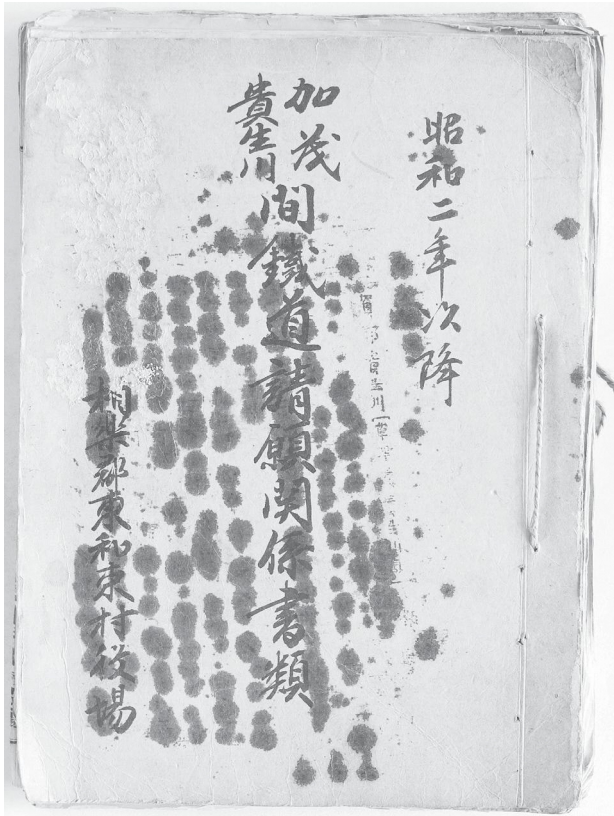 昭和二年次降
加茂
貴生川
間鐵道請願関係書類
相楽郡東和束村役場